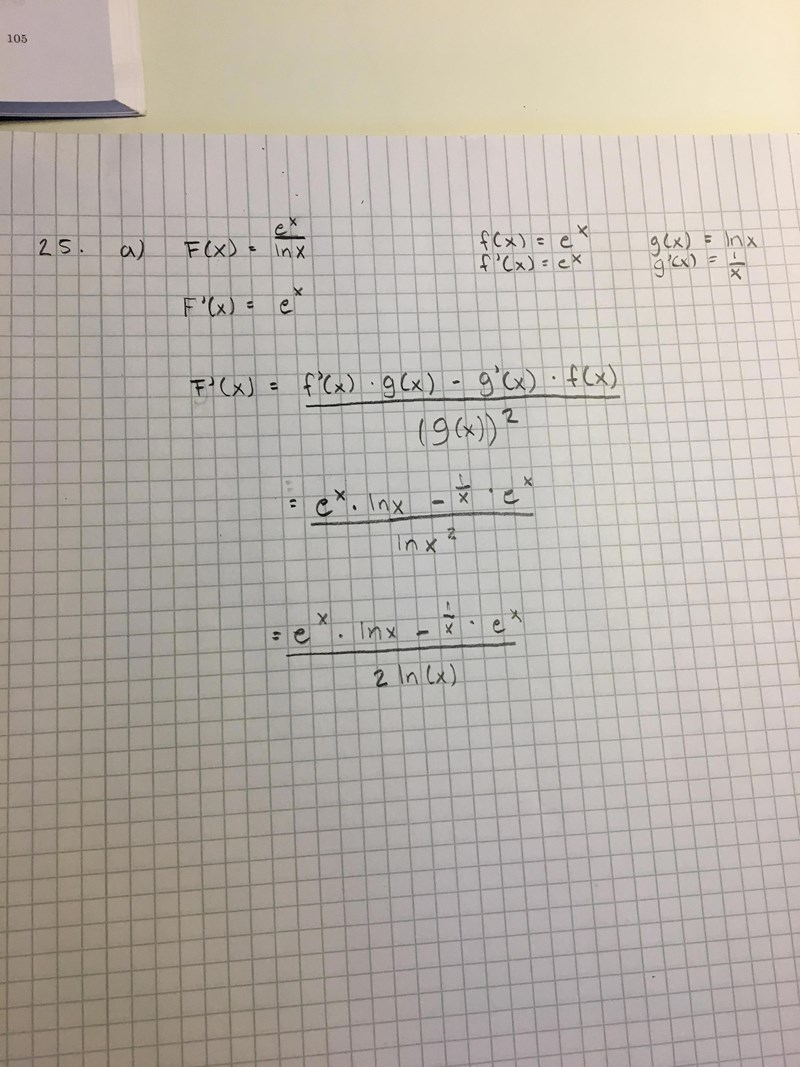 105
25. a) F(x) = e^x / ln x f(x) = e^x g(x) = ln x
f'(x) = e^x g'(x) = 1/x
F'(x) = e^x
F'(x) = f'(x) · g(x) - g'(x) · f(x) / (g(x))^2
= e^x · ln x - 1/x · e^x / ln x^2
= e^x · ln x - 1/x · e^x / 2 ln(x)